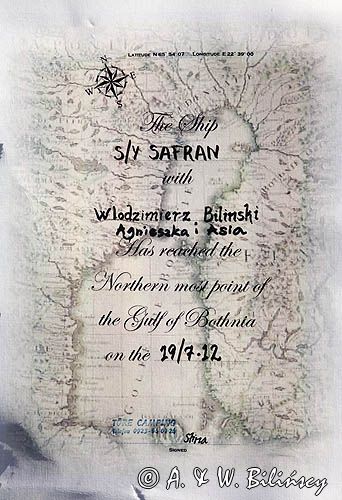 LATITUDE N 65° 54' 07 LONGITUDE E 22° 39' 00
N
W E
S
The Ship
S/Y SAFRAN
with
Wlodzimierz Bilinski
Agnieszka i Asia
Has reached the
Northern most point of
the Gulf of Bothnia
on the 19/7-12
TÖRE CAMPING
SIGNED
© A. & W. Bilińscy